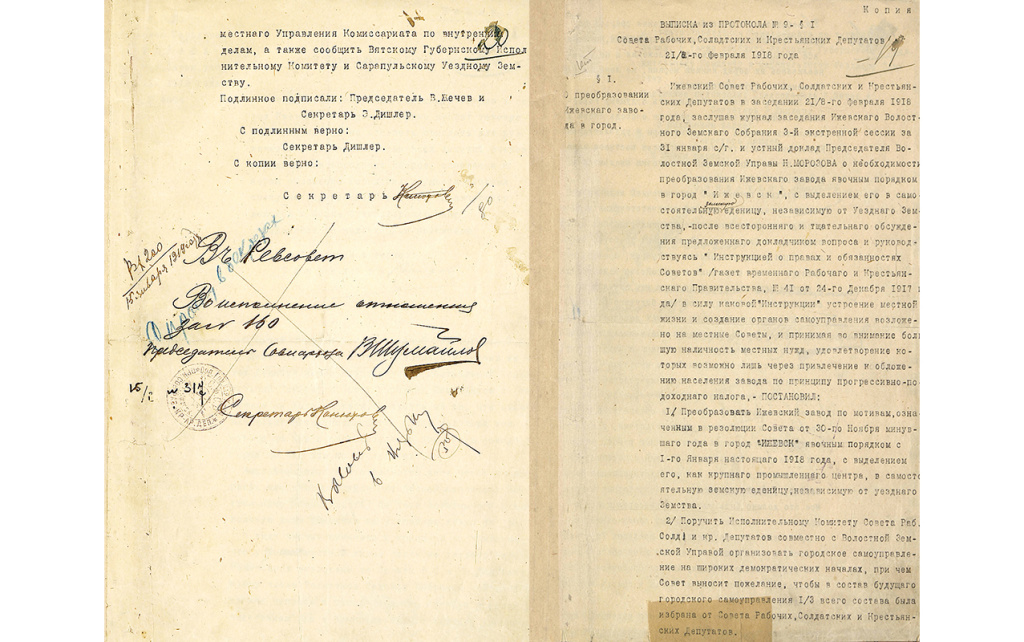 местного Управления Комиссариата по внутренним
делам, а также сообщить Вятскому Губернскому Испол
нительному Комитету и Сарапульскому Уездному Зем-
ству.
Подлинное подписали: Председатель В.Жечев и
Секретарь Э.Дишлер.
С подлинным верно:
Секретарь Дишлер.
С копии верно:
Секретарь
Въ Ревсовет
Во исполнение отношения
за № 160
Председатель Совнархоза В Шумайлов
15/I № 317
Секретарь
Копия
ВЫПИСКА из ПРОТОКОЛА № 9- § I
Совета Рабочих,Солдатских и Крестьянских Депутатов
21/8-го февраля 1918 года
19
§ I.
О преобразовании
Ижевского заво-
да в город.
Ижевский Совет Рабочих, Солдатских и Крестьян-
ских Депутатов в заседании 21/8-го февраля 1918
года, заслушав журнал заседания Ижевского Волост-
ного Земского Собрания 3-й экстренной сессии за
31 января с/г. и устный доклад Председателя Во-
лостной Земской Управы Н.МОРОЗОВА о необходимости
преобразования Ижевского завода явочным порядком
в город "Ижевск", с выделением его в само-
стоятельную еденицу, независимую от Уезднаго Зем-
ства,-после всестороннего и тщательнаго обсуждения
предложеннаго домладчиком вопроса и руковод-
ствуясь " Инструкцией о правах и обязанностях
Советов" /газет временнаго Рабочаго и Крестьян-
скаго Правительства, № 41 от 24-го Декабря 1917 г
да/ в силу каковой"Инструкции" устроение местной
жизни и создание органов самоуправления возложе-
но на местные Советы, и принимая во внимание боль
шую наличность местных нужд, удовлетворение ко-
торых возможно лишь через привлечение и обложе-
нию населения завода по принципу прогрессивно-по-
доходнаго налога,- ПОСТАНОВИЛ:
1/ Преобразовать Ижевский завод по мотивам,озна-
ченным в резолюции Совета от 30-по Ноября минув-
шаго года в город "ИЖЕВСК" явочным порядком с
I-го Января настоящаго 1918 года, с выделением
его, как крупнаго промышленнаго центра, в самосто
ятельную земскую еденицу,независимую от уезднаго
Земства.
2/ Поручить Исполнительному Комитету Совета Раб.
Солд) и кр. Депутатов совместно с Волостной Зем-
ской Управой организовать городское самоуправле-
ние на широких демократических началах, при чем
Совет выносит пожелание, чтобы в состав будущаго
городского самоуправления I/3 всего состава была
избрана от Совета Рабочих,Солдатских и Крестьян-
ских Депутатов.